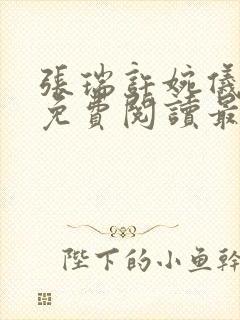 張瑞許婉儀
免費閱讀最
陛下的小魚幹